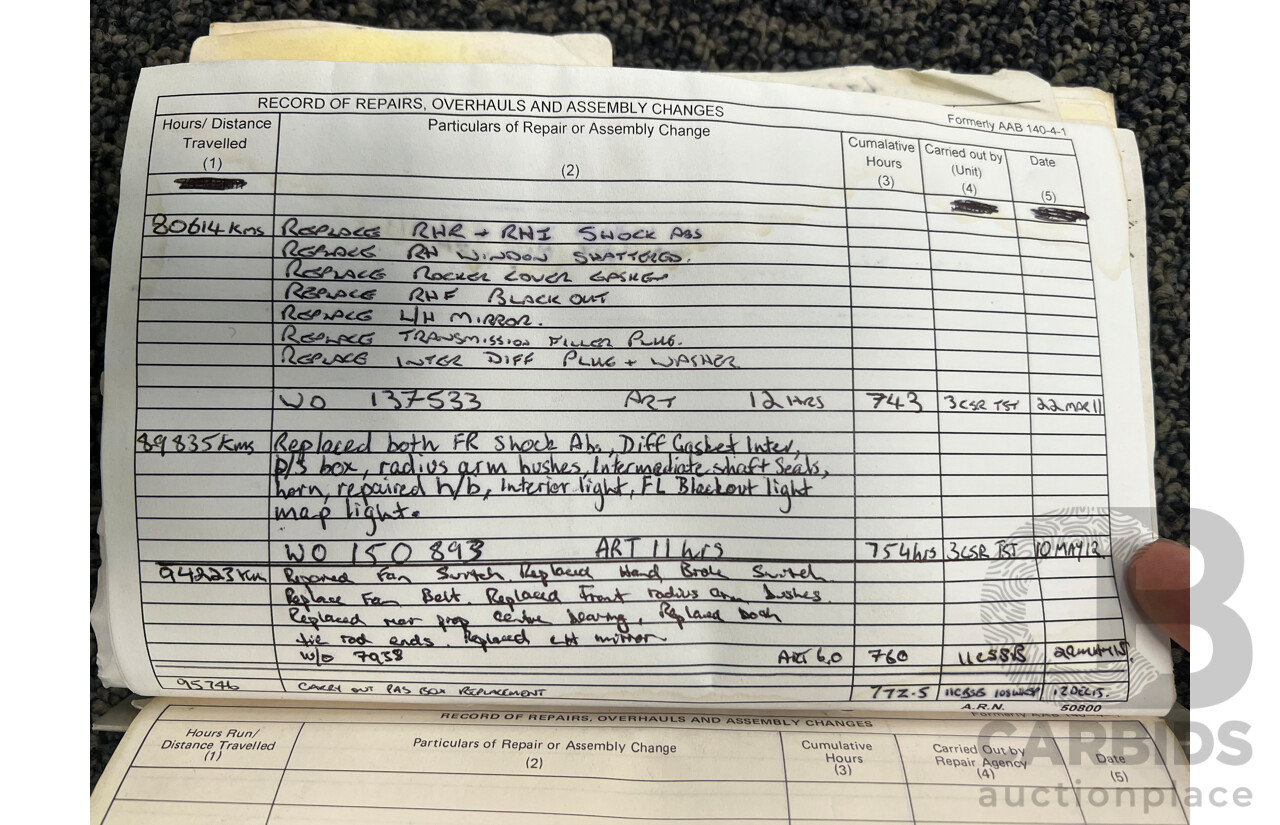 RECORD OF REPAIRS, OVERHAULS AND ASSEMBLY CHANGES
Formerly AAB 140-4-1
Hours/ Distance Travelled (1)
Particulars of Repair or Assembly Change (2)
Cumalative Hours (3)
Carried out by (Unit) (4)
Date (5)
80614 kms REPLACE RHR + RHI SHOCK ABS
REPLACE RH WINDOW SHATTERED.
REPLACE ROCKER COVER GASKET
REPLACE RHF BLACK OUT
REPLACE L/H MIRROR.
REPLACE TRANSMISSION FILLER PLUG.
REPLACE INTER DIFF PLUG + WASHER
WO 137533 ART 12 HRS 743 3CSR TST 22 MAR 11
89835 Kms Replaced both FR Shock Abs, Diff Gasket Inter,
P/S box, radius arm bushes, Intermediate shaft Seals,
horn, repaired h/b, Interior light, FL Blackout light
map light.
WO 150 893 ART 11 hrs 754hrs 3CSR TST 10 MAY 12
94223 Km Repaired Fan Switch. Replaced Hand Brake Switch
Replace Fan Belt. Replaced front radius arm bushes.
Replaced rear prop centre bearing, Replaced both
tie rod ends. Replaced mirror
W/O 7938 ART 6.0 760 11CSSB
95746 CARRY OUT PAS BOX REPLACEMENT 772.5 12 DEC 15.
A.R.N. 50800
RECORD OF REPAIRS, OVERHAULS AND ASSEMBLY CHANGES
Formerly AAB 140-4-
Hours Run/ Distance Travelled (1)
Particulars of Repair or Assembly Change (2)
Cumulative Hours (3)
Carried Out by Repair Agency (4)
Date (5)
CARBIDS
auctionplace